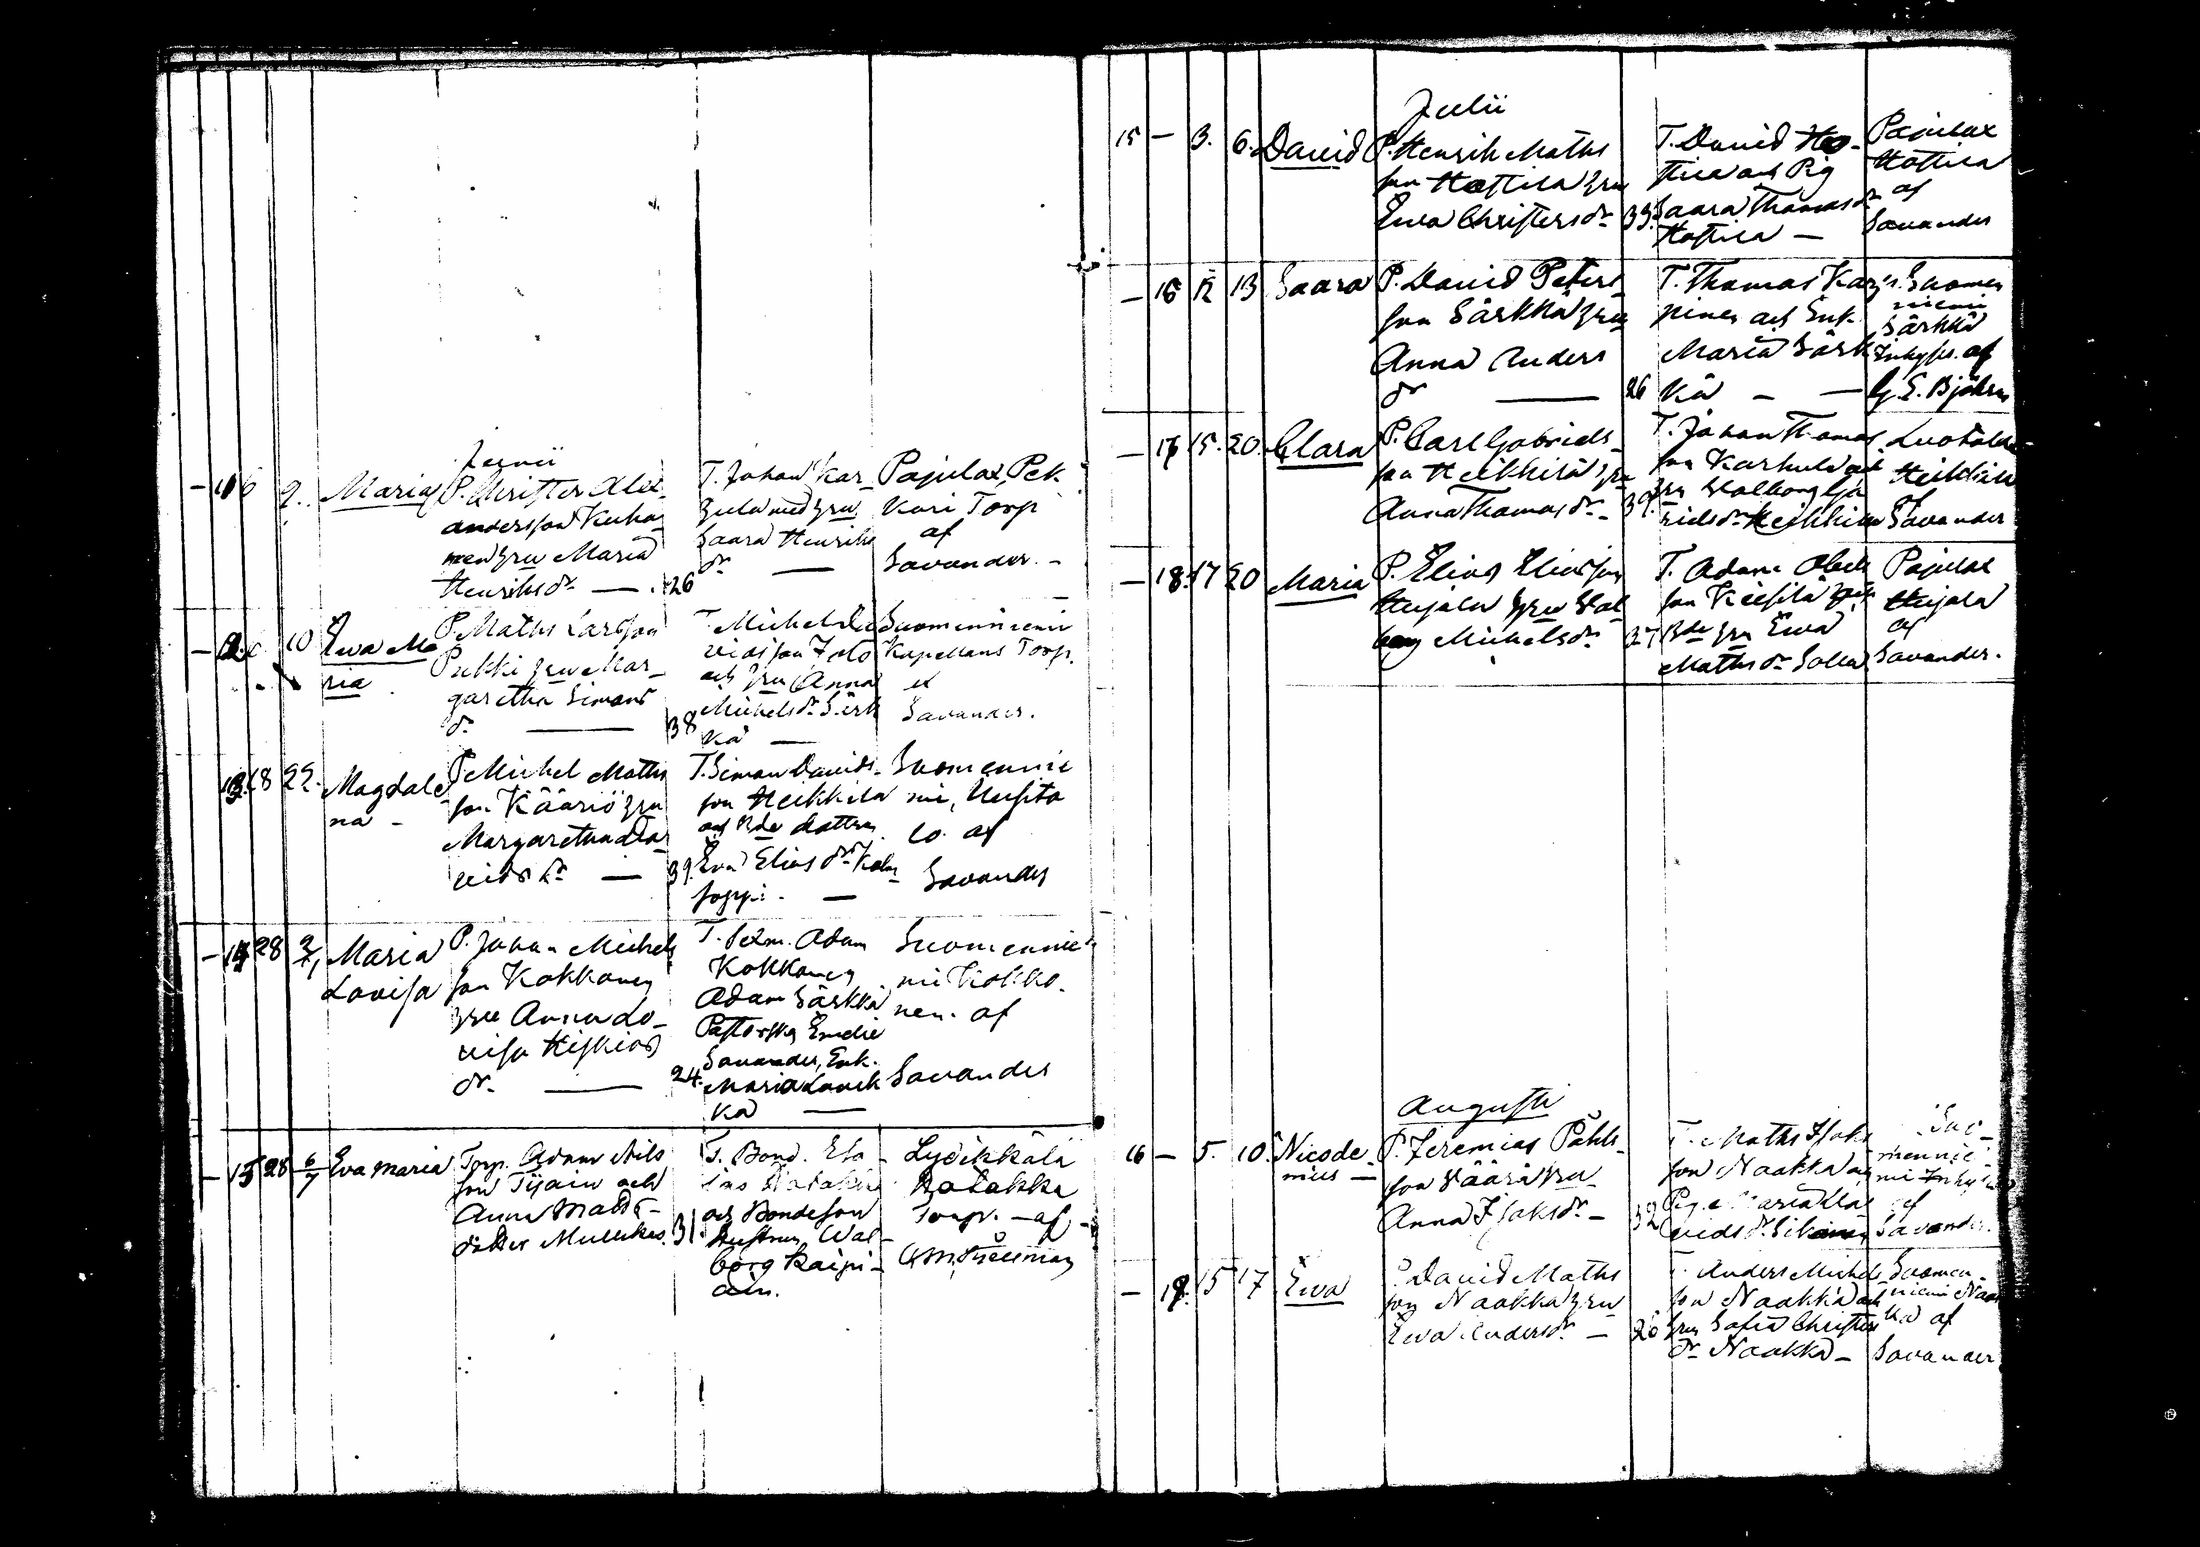 Junii
- 11 6 9. Maria
P. Christer Alex-
andersson Kuho-
nen hru Maria
Henriksdr — 26
T. Johan Kar-
hula med hru
Saara Henriks
dr —
Pajulax, Pek
Kari Torp
af
Savander. -
10 Ewa Ma
ria
P. Maths Larsson
Pukki hru Mar-
garetha Simons
dr — 38
T. Michel Da
vidsson
och hru Anna
Michelsdr Särk
kä —
Suomenniemi
Kapellans Torp.
af
Savander.
18 22. Magdale
na -
P. Michel Maths
son Kääriö hru
Margaretha Da
vidsdr — 39
T. Simon Davids-
son Heikkilä
och
Eva Elias dr
soppi. —
Suomennie
mi, Uusita
lo. af
Savander
- 14 28 2/7 Maria
Lovisa
P. Johan Michels
son Kokkonen
hru Anna Lo-
visa Hiskias
dr. — 24.
T. Adam
Kokkonen
Adam Särkkä
Pastorska Emelie
Savander, Enk.
Maria Lavik
ka —
Suomennie
mi Kokko-
nen. af
Savander
- 15 28 6/7 Eva Maria
Torp. Adam Nils
son Tijain och
Anna Matts-
dotter 31
T. Bond. Eli
as Ratakka
och Bondeson
hustrun Wal-
borg Kaipi-
ain.
Lydikkälä
Ratakka
Torp. - af -
Julii
15 - 3. 6. David
P. Henrik Maths
son Hottila hru
Ewa Christersdr 33
T. David Ho-
ttila och Pig
Saara Thomasdr
Hottila —
Pajulax
Hottila
af
Savander
- 16 12 13 Saara
P. David Peters
son Särkkä hru
Anna Anders
dr — 26
T. Thomas Kar
pinen och Enk.
Maria Särk
kä - —
Suomen
niemi
Särkkä
Inhyses. af
G. E. Björkm
- 17 15. 20. Clara
P. Carl Gabriels-
son Heikkilä hru
Anna Thomasdr - 39.
T. Johan Thomas
son Karhula och
hru Walborg Ga
rielsdr Heikkilä
Luotolax
Heikkilä
af
Savander
- 18. 17 20 Maria
P. Elias Eliasson
Hujala hru Wal
borg Michelsdr 27
T. Adam Abels
son Kiesilä
hru Ewa
Mathsdr
Pajulax
Hujala
af
Savander.
Augusti
16 - 5. 10. Nicode-
mus —
P. Jeremias Påhls-
son Väärä hru
Anna Isaksdr - 32
T. Maths Isaks
son Naakka och
Pig. Maria Da
vidsdr
Suo-
mennie
mi
af
Savander.
- 19. 15 17 Ewa
P. David Maths
son Naakka hru
Ewa Andersdr - 26
T. Anders Michels
son Naakka och
hru Sofia Christers
dr Naakka -
Suomen-
niemi Naak
ka af
Savander